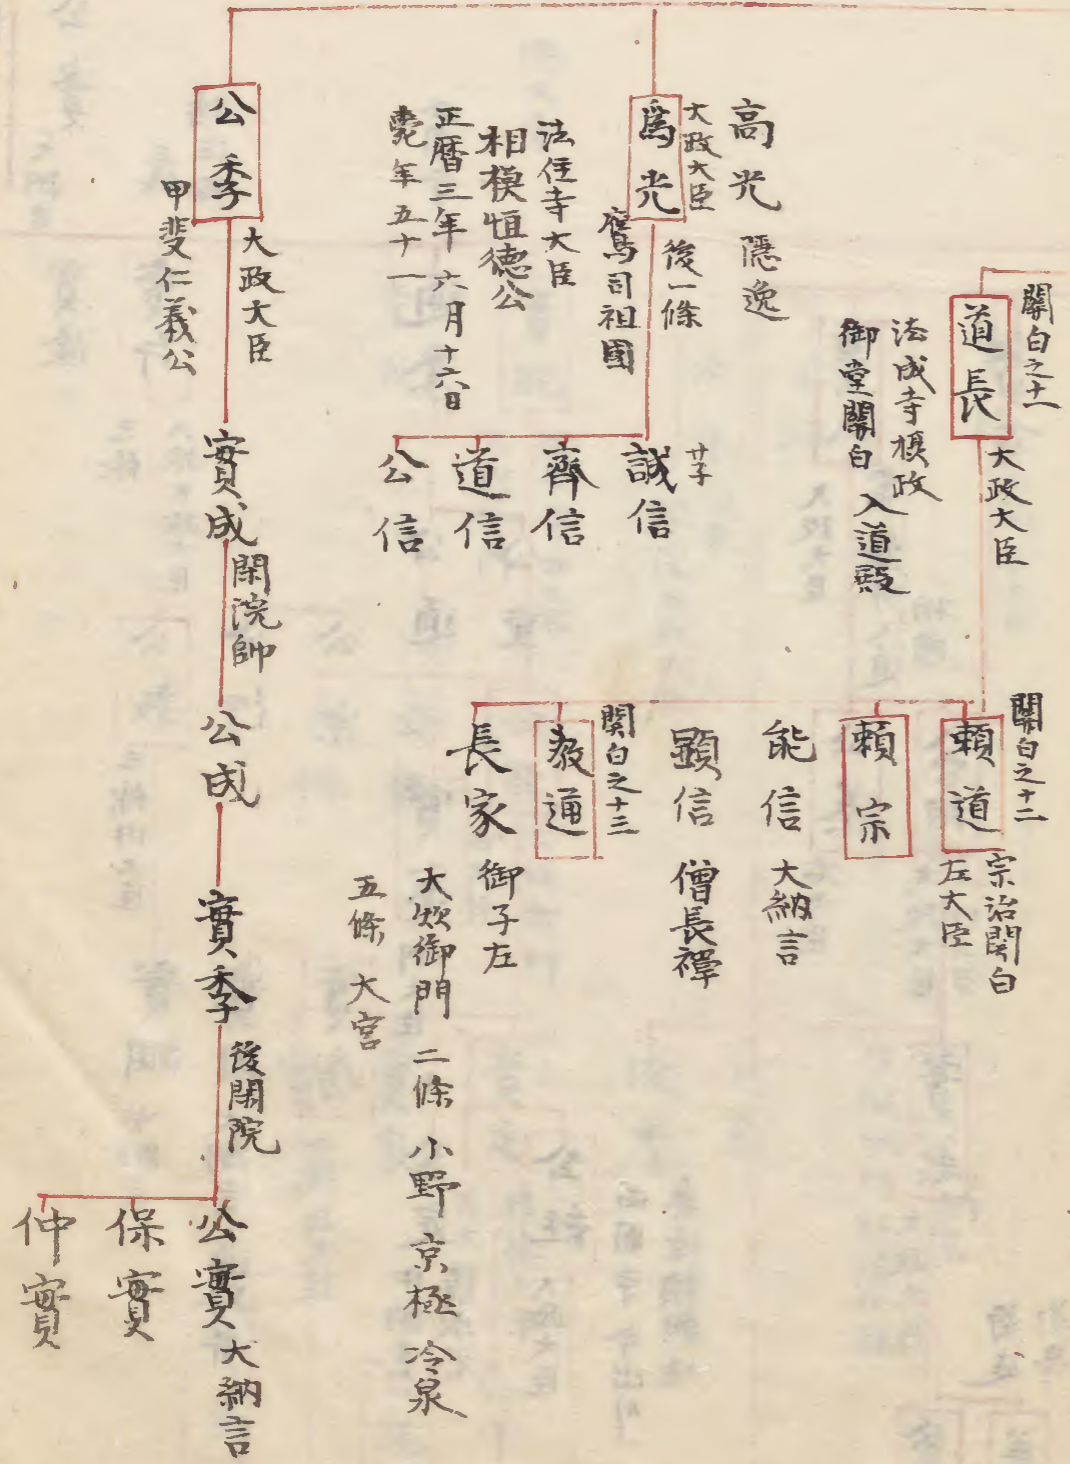 關白之十一
道長
大政大臣
法成寺摂政
御堂關白 入道殿
關白之十二
頼道
宗治関白
左大臣
頼宗
能信 大納言
顕信 僧長禅
関白之十三
教通
長家 御子左
大炊御門 二條 小野 京極 冷泉
五條 大宮
高光 隠逸
大政大臣
為光
後一條
鷹司祖國
法住寺大臣
相模恒徳公
正暦三年六月十六日
薨年五十一
誠信
齊信
道信
公信
公季
大政大臣
甲斐仁義公
實成
閑院帥
公成
實季
後閑院
公實 大納言
保實
仲實